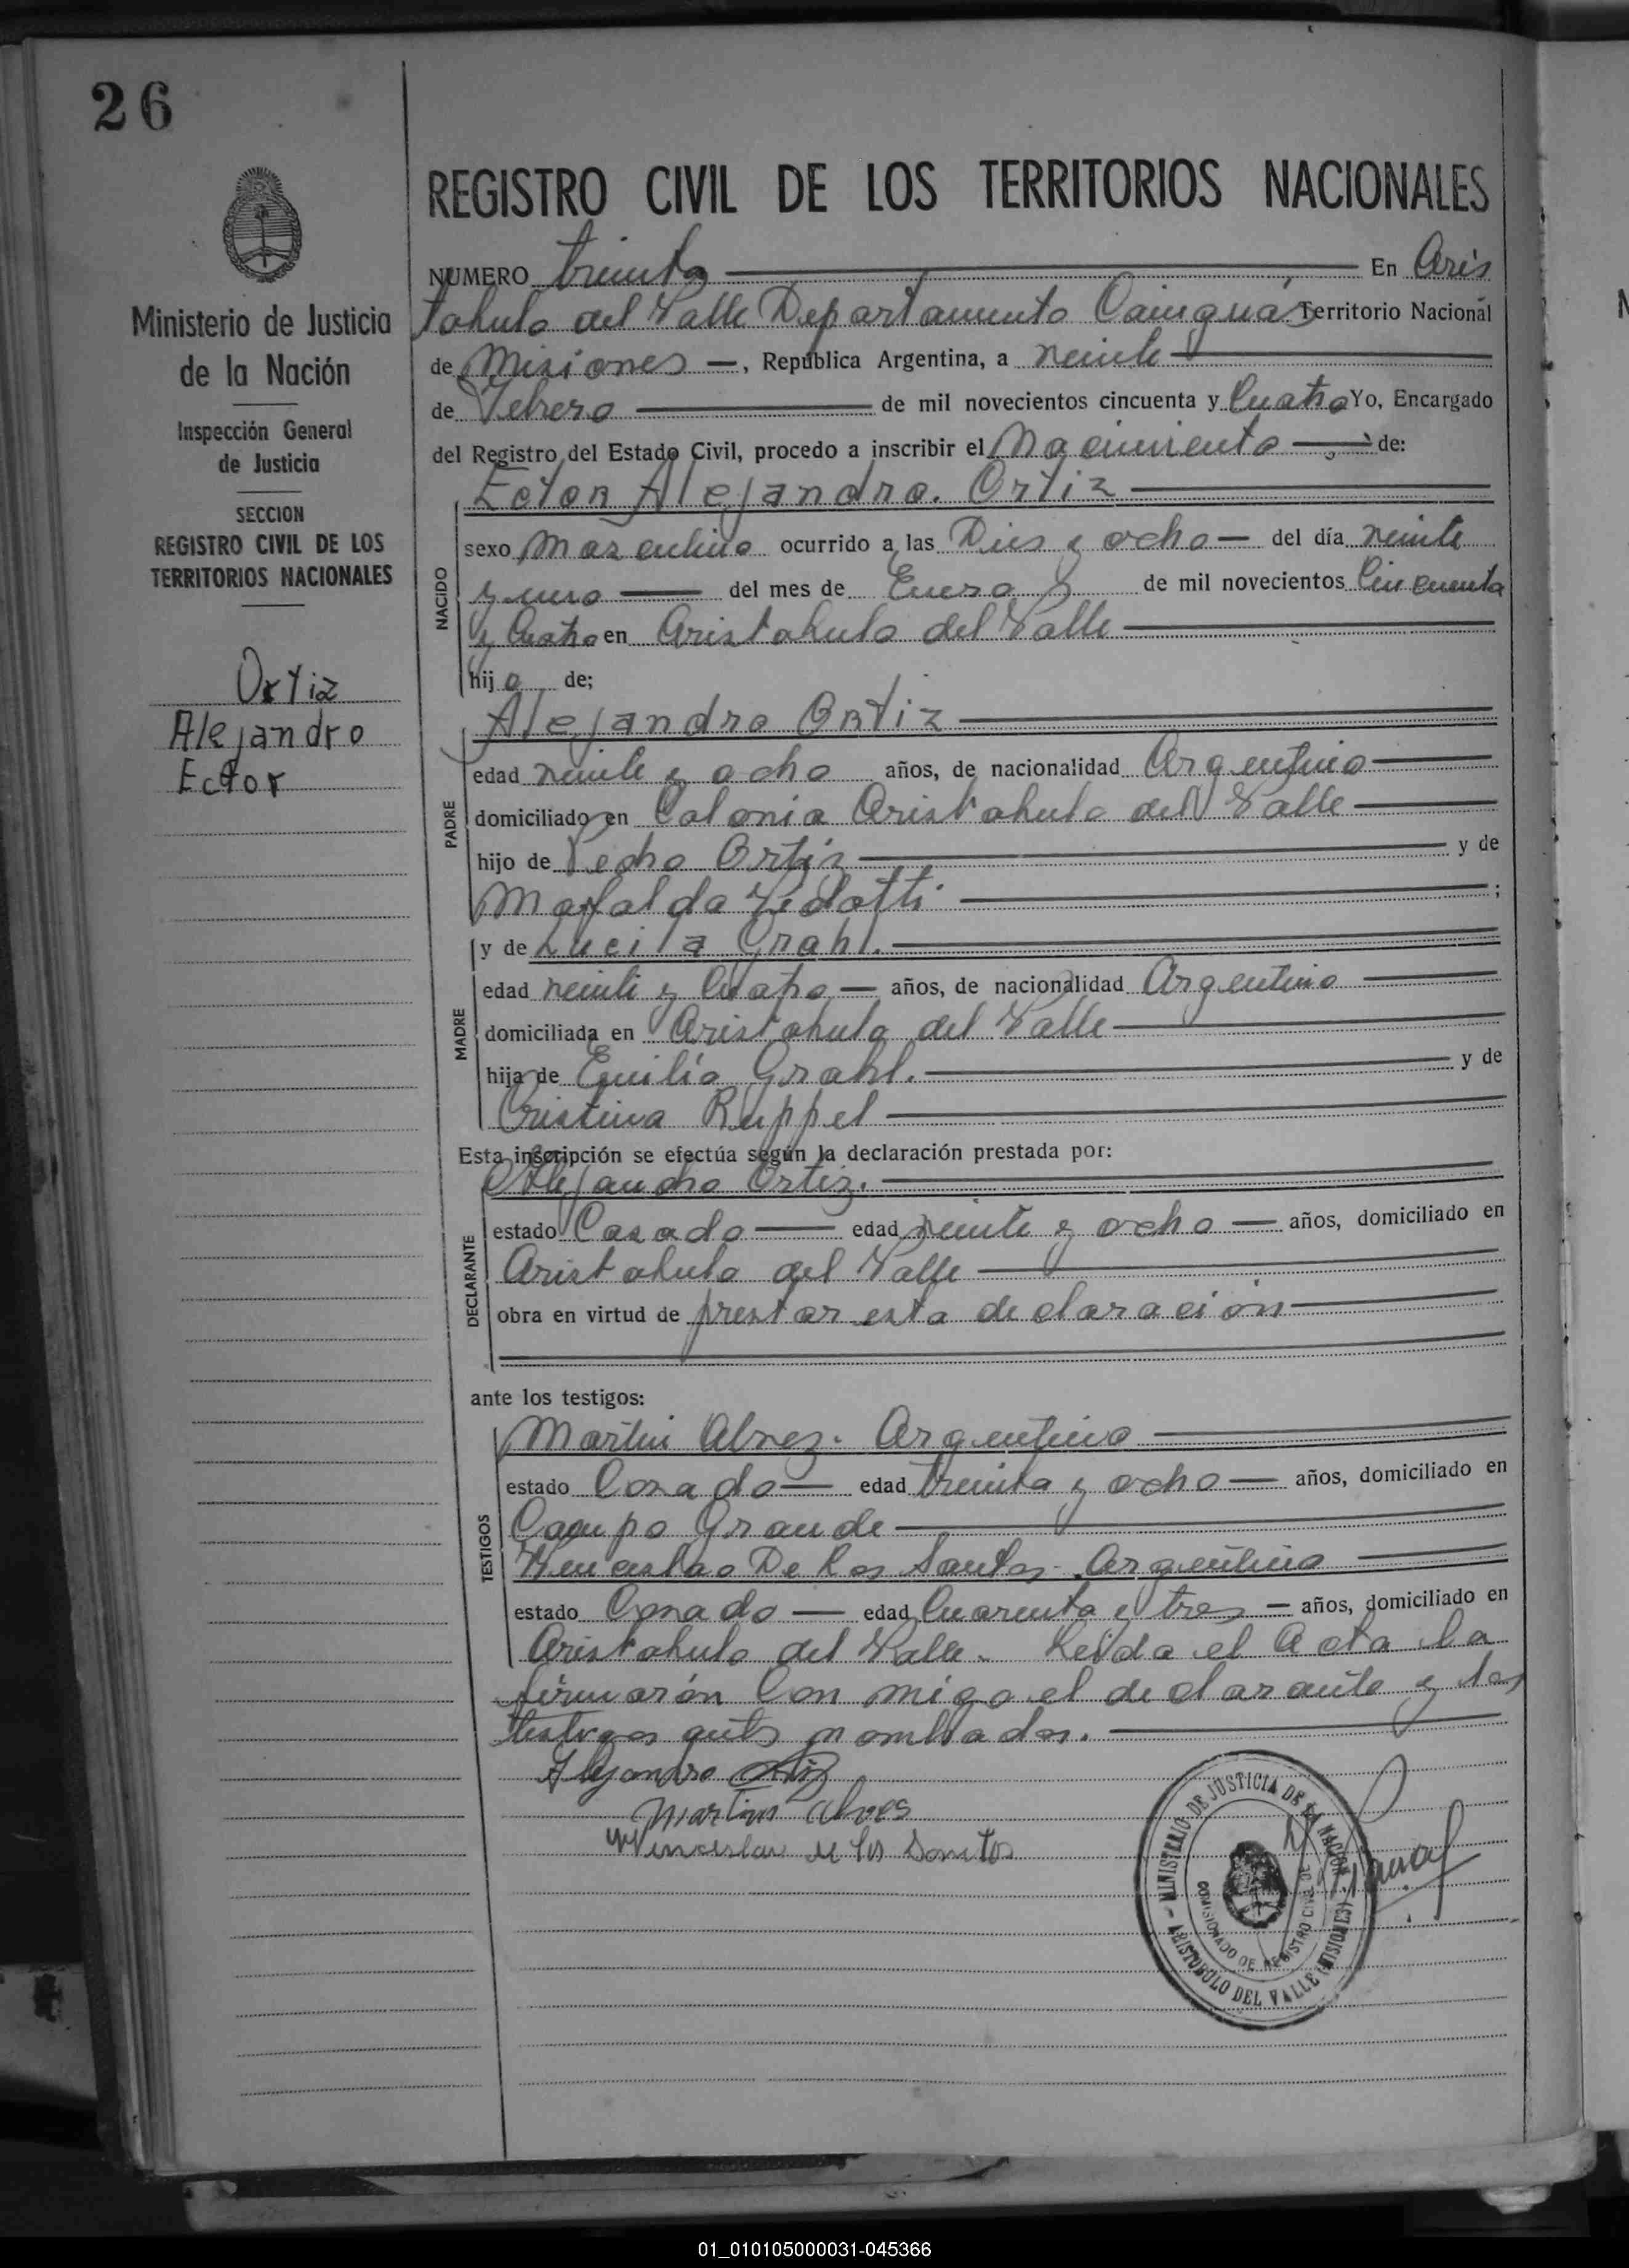 26
REGISTRO CIVIL DE LOS TERRITORIOS NACIONALES
Ministerio de Justicia
de la Nación
Inspección General
de Justicia
SECCION
REGISTRO CIVIL DE LOS
TERRITORIOS NACIONALES
Ortiz
Alejandro
Ector
NUMERO treinta En Aris
tobulo del Valle Departamento Cainguás Territorio Nacional
de Misiones, República Argentina, a veinte
de Febrero de mil novecientos cincuenta y Cuatro Yo, Encargado
del Registro del Estado Civil, procedo a inscribir el Nacimiento de:
Ector Alejandro. Ortiz
NACIDO
sexo Masculino ocurrido a las Dies y ocho del día veinte
y uno del mes de Enero de mil novecientos Cincuenta
y Cuatro en Aristobulo del Valle
hijo de;
PADRE
Alejandro Ortiz
edad veinte y ocho años, de nacionalidad Argentino
domiciliado en Colonia Aristobulo del Valle
hijo de Pedro Ortiz y de
Mafalda ;
MADRE
y de Lucila Grahl.
edad veinte y Cuatro años, de nacionalidad Argentino
domiciliada en Aristobulo del Valle
hija de Emilio Grahl. y de
Cristina Ruppel
Esta inscripción se efectúa según la declaración prestada por:
DECLARANTE
Alejandro Ortiz.
estado Casado edad veinte y ocho años, domiciliado en
Aristobulo del Valle
obra en virtud de prestar esta declaracion
ante los testigos:
TESTIGOS
Martin Alvez. Argentino
estado Casado edad treinta y ocho años, domiciliado en
Campo Grande
De los Santos. Argentino
estado Casado edad Cuarenta y tres años, domiciliado en
Aristobulo del Valle. Leida el Acta la
firmarón Con migo el declarante y los
testigos ants nombrados.
Alejandro Ortiz
Martin Alves
Wenceslao de los Santos
MINISTERIO DE JUSTICIA DE LA NACION
COMISIONADO DE REGISTRO CIVIL DE
ARISTOBULO DEL VALLE (MISIONES)
01_010105000031-045366